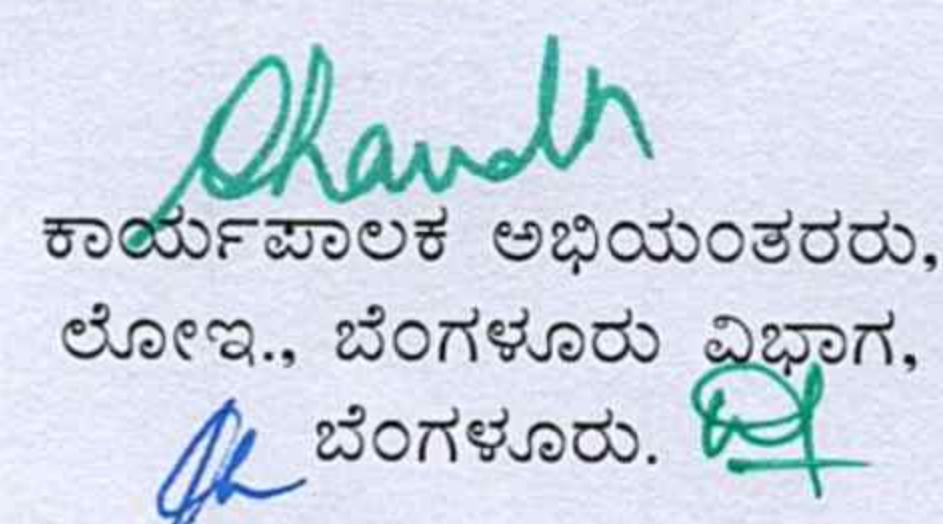 ಕಾರ್ಯಪಾಲಕ ಅಭಿಯಂತರರು,
ಲೋಇ., ಬೆಂಗಳೂರು ವಿಭಾಗ,
ಬೆಂಗಳೂರು.